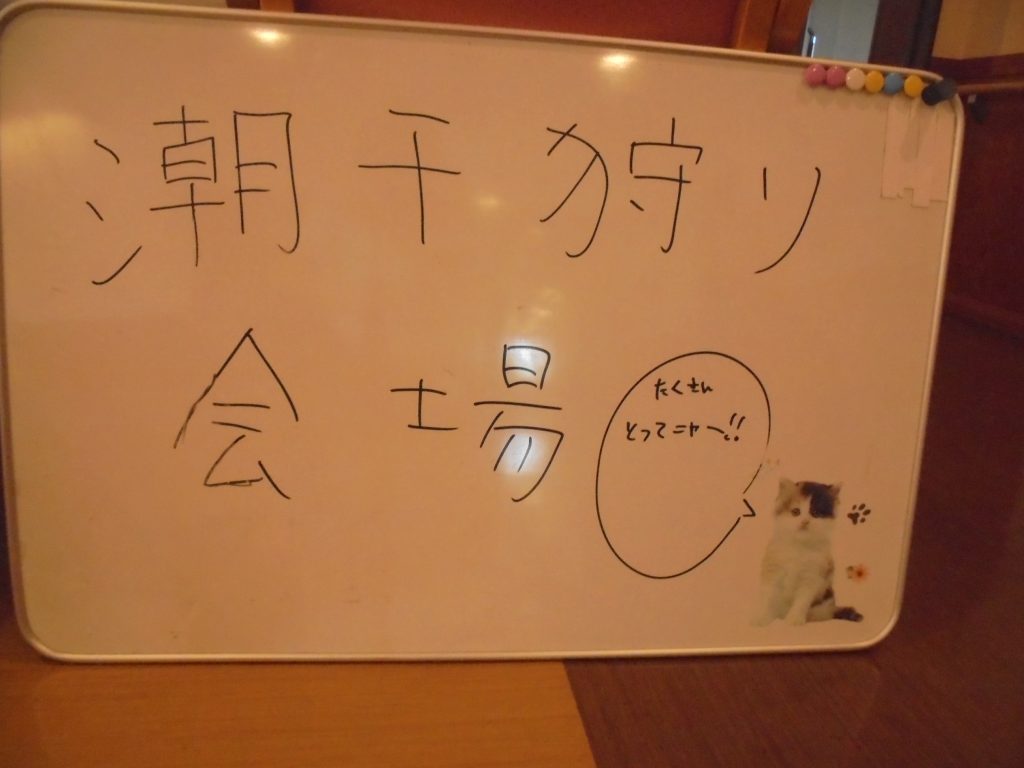 潮干狩り
会場
たくさん
とってニャー!!